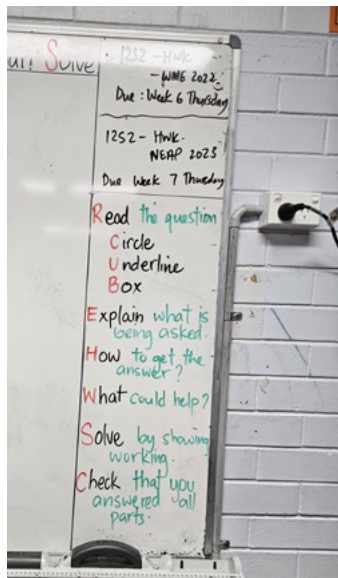 Solve
12S2 - HWK
- WMG 2022
Due : Week 6 Thursday
12S2 - HWK.
NEAP 2023
Due Week 7 Thursday
Read the question
Circle
Underline
Box
Explain what is
being asked.
How to get the
answer?
What could help?
Solve by showing
working.
Check that you
answered all
parts.